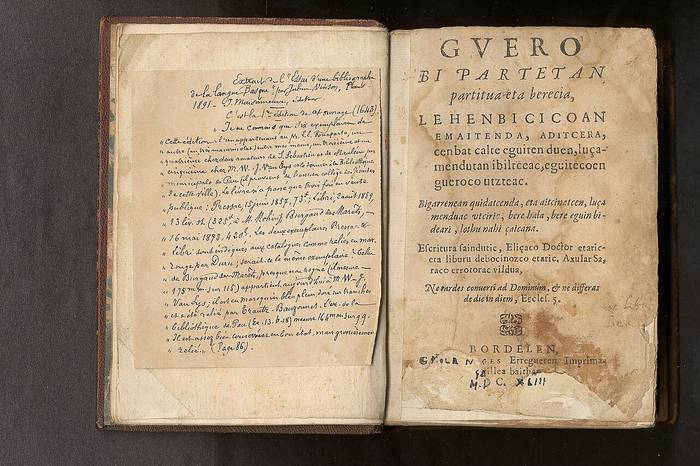 Extrait de l'Essai d'une bibliographie
de la langue Basque, par Julien Vinson, Paris
1891 - J. Maisonneuve, éditeur
C'est la 1re édition de cet ouvrage (1643)
" Je ne connais que six exemplaires de
" cette édition: l'un appartenant au Pr. L.L. Bonaparte, un
" autre entre mes mains, un troisième et un
" quatrième chez deux amateurs de St Sébastien et de
" cinquième chez M. W. J. Van Eys et le dernier à la Bibliothèque
" municipale de Pau (il provient de l'ancien collège des Jésuites
" de cette ville). Le livre n'a passé que trois fois en vente
" publique: Pressac, 15 juin 1857, 73f; Libri, 2 août 1859,
" 13 liv. st. (325f à M. Burgaud des Marêts,
" 16 mai 1873, 420f. Les deux exemplaires Pressac &
" Libri sont indiqués aux catalogues comme reliés en mar.
" rouge par Duru; serait-ce le même exemplaire? Celui
" de Burgaud des Marêts, presque non rogné (il mesure
" 175mm sur 115) appartient aujourd'hui à M. W. J.
" Van Eys; il est en maroquin bleu plein, doré sur tranches
" et a été relié par Trautz-Bauzonnet. L'ex. de la
" bibliothèque de Pau mesure 164mm sur 99.
" Il est assez bien conservé et en bon état, mais grossièrement
" relié. " (Page 86).
GVERO
BI PARTETAN
partitua eta berecia,
LEHENBICICOAN
EMAITENDA, ADITCERA,
cenbat calte eguiten duen, luça-
mendutan ibiltceac, eguitecoen
gueroco utzteac.
Bigarrenean quidatcenda, eta aitcinatcen, luça
menduac utciric, bere hala, bere eguin bi-
deari, lothu nahi çaicana.
Escritura saindutic, Eliçaco Doctor etaric-
eta liburu debocinozco etaric. Axular Sa-
raco errotorac vildua,
Ne tardes conuerti ad Dominum, & ne differas
de die in diem, Eccles. 5.
BORDELEN,
G. MILANGES Erregueren Imprima-
çaillea baithan
M. D C. XLIII